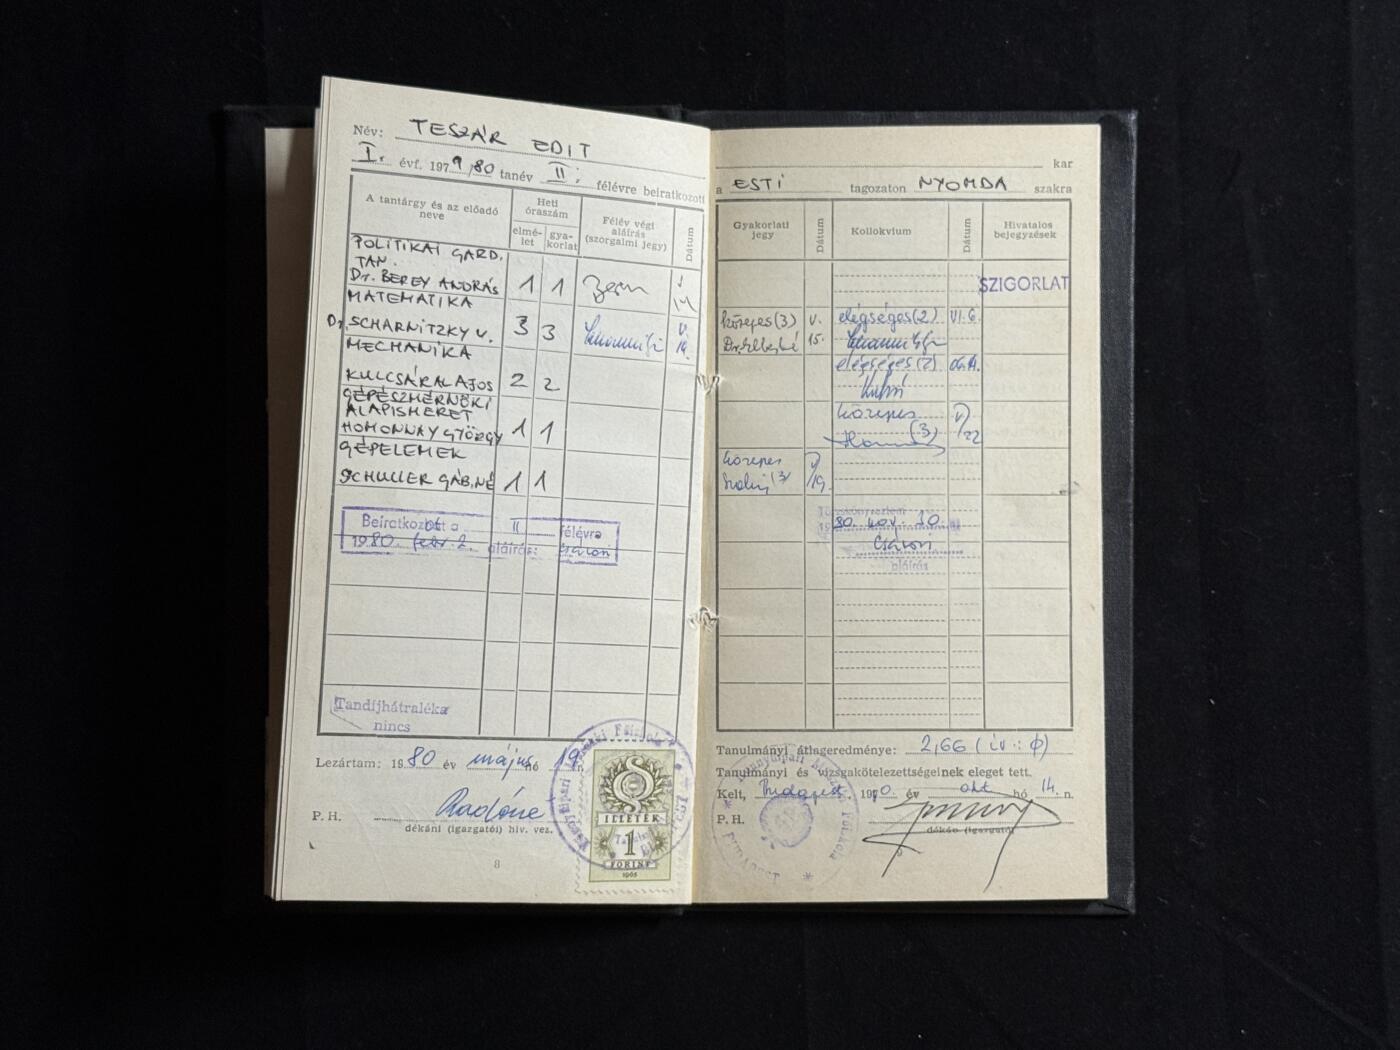 Név: TESZÁR EDIT
I. évf. 1979/80 tanév II. félévre beiratkozott
A tantárgy és az előadó neve
Heti óraszám
elmé-let
gya-korlat
Félév végi aláírás (szorgalmi jegy)
Dátum
POLITIKAI GAZD. TAN.
Dr. BEREY ANDRÁS 1 1
MATEMATIKA
Dr. SCHARNITZKY V. 3 3 V.
MECHANIKA
KULCSÁR LAJOS 2 2
GÉPÉSZMÉRNÖKI
ALAPISMERET
HOMONNAY GYÖRGY 1 1
GÉPELEMEK
SCHULLER GÁB.NÉ 1 1
Beiratkozott a II félévre
1980. febr. 2. aláírás:
Tandíjhátraléka
nincs
Lezártam: 1980 év május hó 19
P. H. Radóné
dékáni (igazgatói) hiv. vez.
8
ILLETÉK
1
FORINT
1965
kar
a ESTI tagozaton NYOMDA szakra
Gyakorlati jegy
Dátum
Kollokvium
Dátum
Hivatalos bejegyzések
SZIGORLAT
közepes (3) V. elégséges (2) VI. 6.
15.
elégséges (2)
közepes
(3) 22
közepes
(3) 19.
80. nov. 10.
aláírás
Tanulmányi átlageredménye: 2,66 (iv.: Φ)
Tanulmányi és vizsgakötelezettségeinek eleget tett.
Kelt, Budapest 1980. év okt hó 14. n.
P. H.
dékán (igazgató)
Könnyűipari Műszaki Főiskola
BUDAPEST